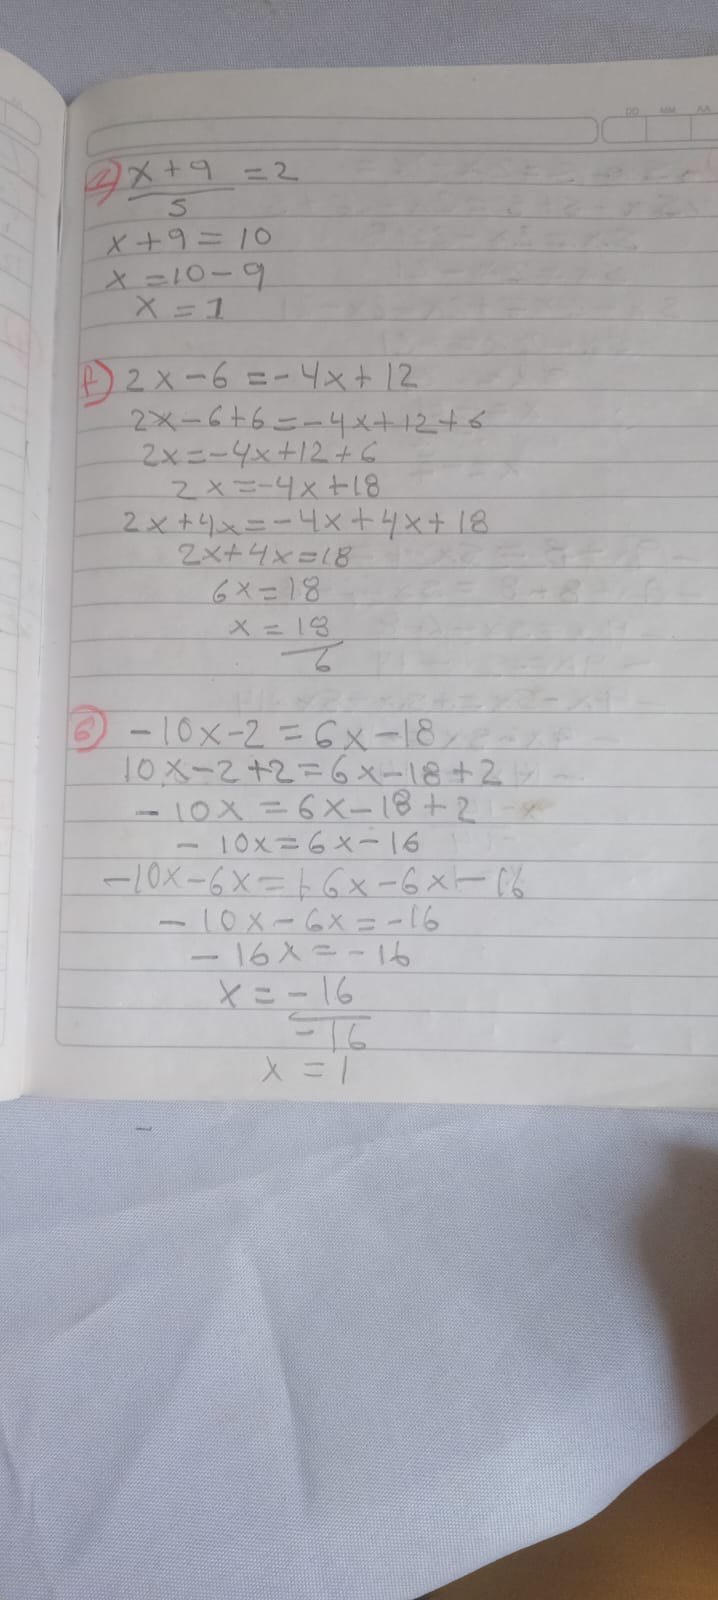 DD MM AA
x+9 = 2
5
x+9=10
x=10-9
x=1
f) 2x-6=-4x+12
2x-6+6=-4x+12+6
2x=-4x+12+6
2x=-4x+18
2x+4x=-4x+4x+18
2x+4x=18
6x=18
x=18
6
-10x-2=6x-18
10x-2+2=6x-18+2
-10x=6x-18+2
-10x=6x-16
-10x-6x=+6x-6x-16
-10x-6x=-16
-16x=-16
x=-16
-16
x=1